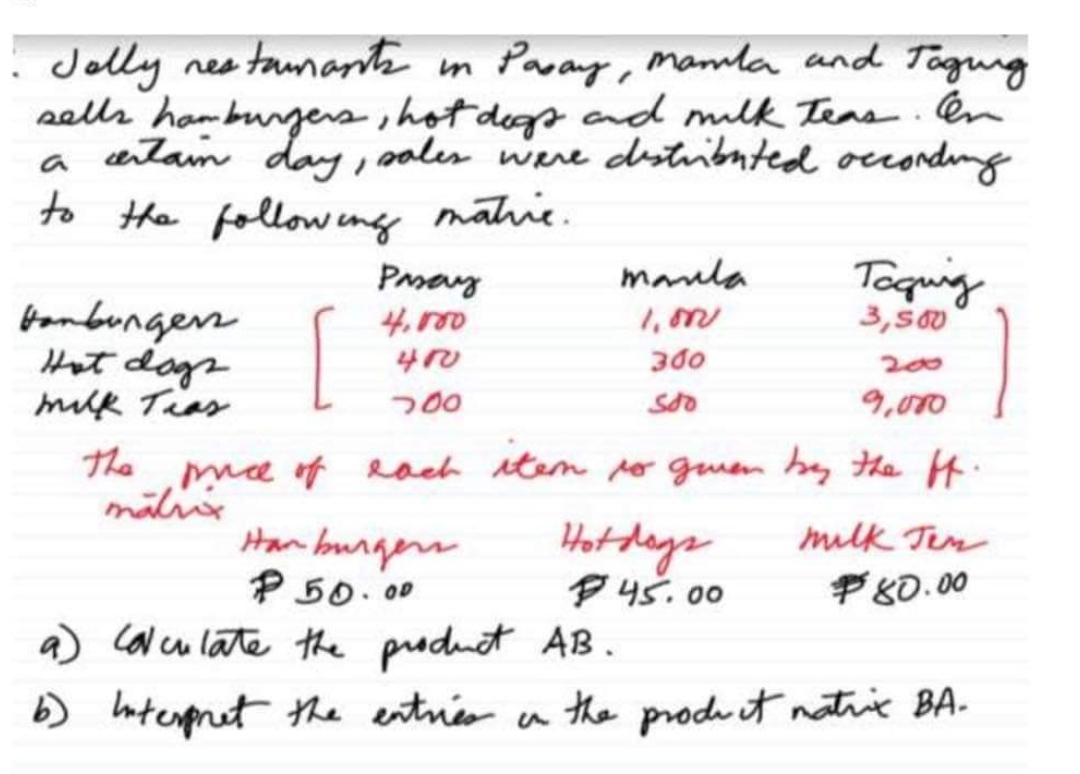 . Jolly restaurants in Pasay, Manila and Taguig
sells hamburgers, hot dogs and milk Teas. On
a certain day, sales were distributed according
to the following matrix.
Pasay Manila Taguig
Hamburgers 4,000 1,000 3,500
Hot dogs 400 300 200
Milk Teas 700 500 9,000
The price of each item is given by the ff.
matrix
Hamburgers Hotdogs Milk Teas
₱ 50.00 ₱ 45.00 ₱ 80.00
a) Calculate the product AB.
b) Interpret the entries in the product matrix BA.